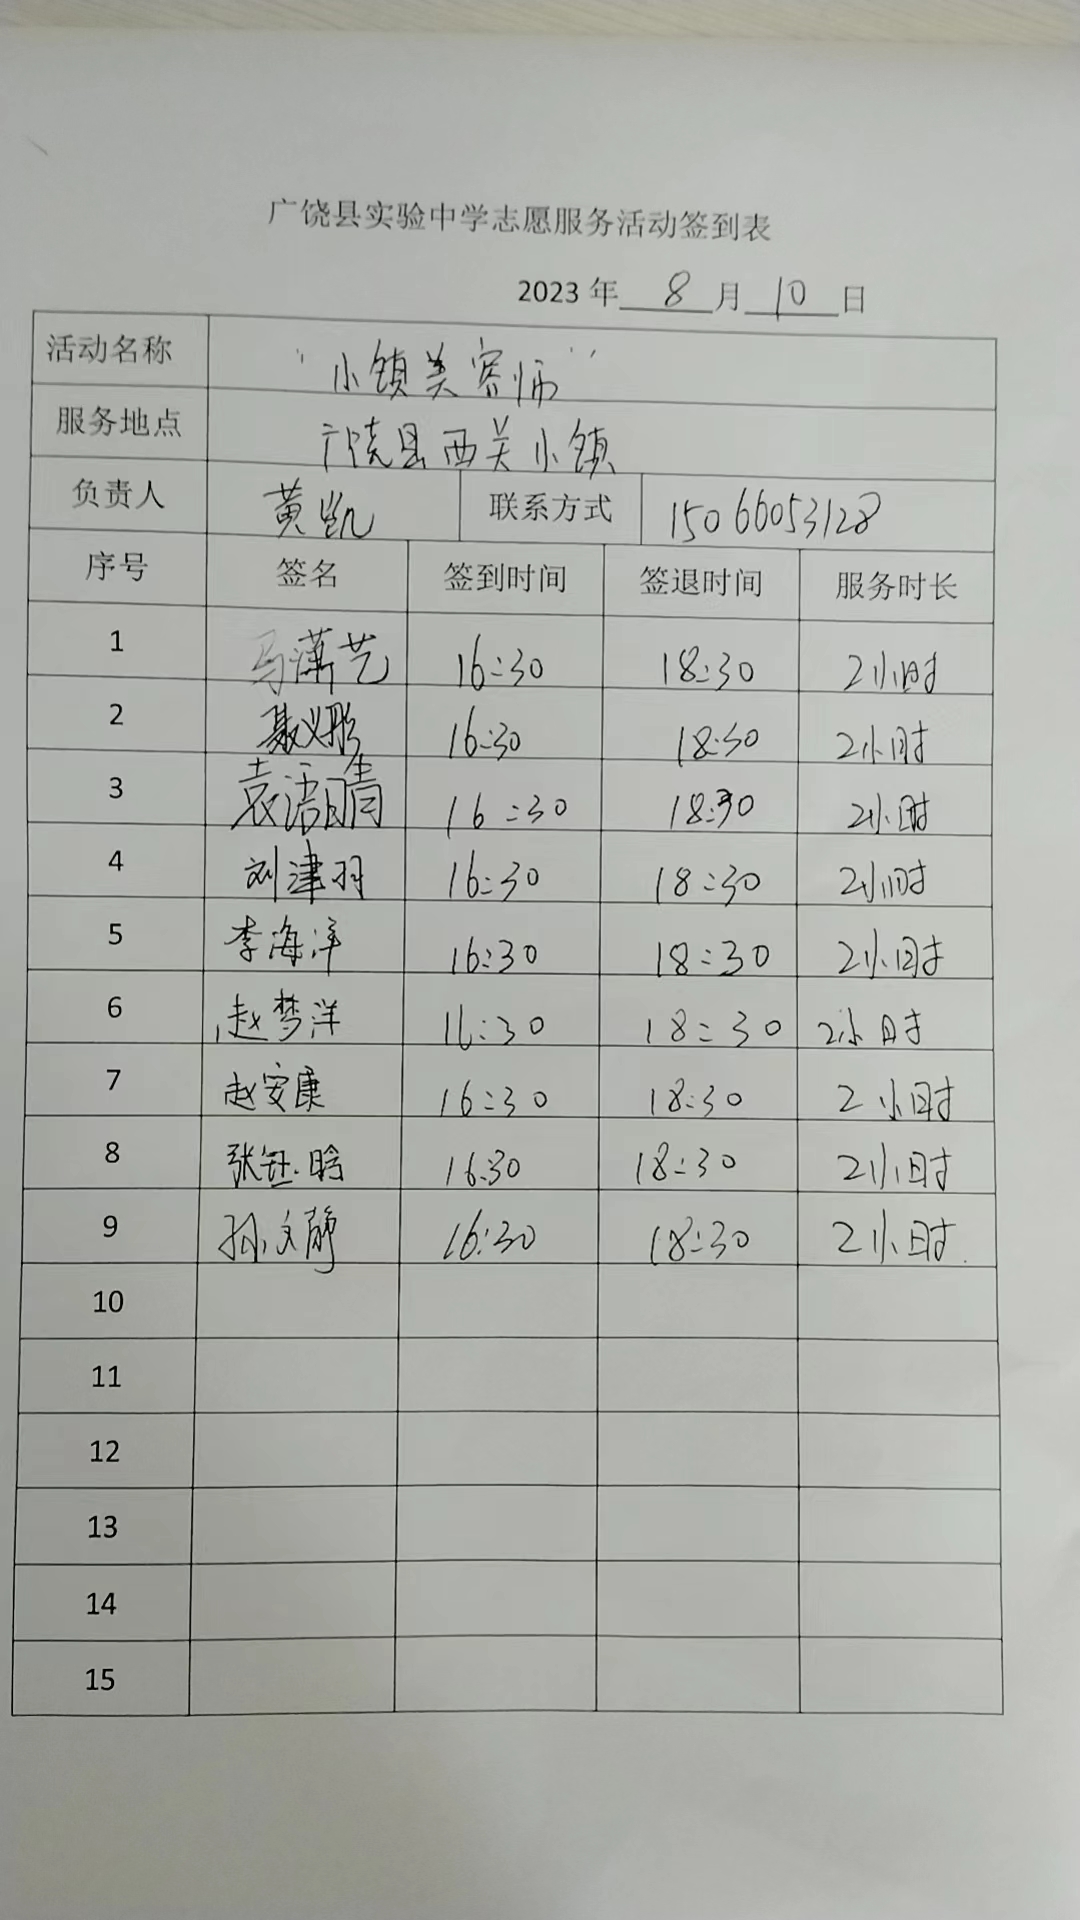 广饶县实验中学志愿服务活动签到表
2023 年 8 月 10 日
活动名称 “小镇美容师”
服务地点 广饶县西关小镇
负责人 黄凯 联系方式 15066053128
序号 签名 签到时间 签退时间 服务时长
1 马潇艺 16:30 18:30 2小时
2 聂义彤 16:30 18:30 2小时
3 袁语晴 16:30 18:30 2小时
4 刘津羽 16:30 18:30 2小时
5 李海洋 16:30 18:30 2小时
6 赵梦洋 16:30 18:30 2小时
7 赵安康 16:30 18:30 2小时
8 张钰晗 16:30 18:30 2小时
9 孙文静 16:30 18:30 2小时
10
11
12
13
14
15